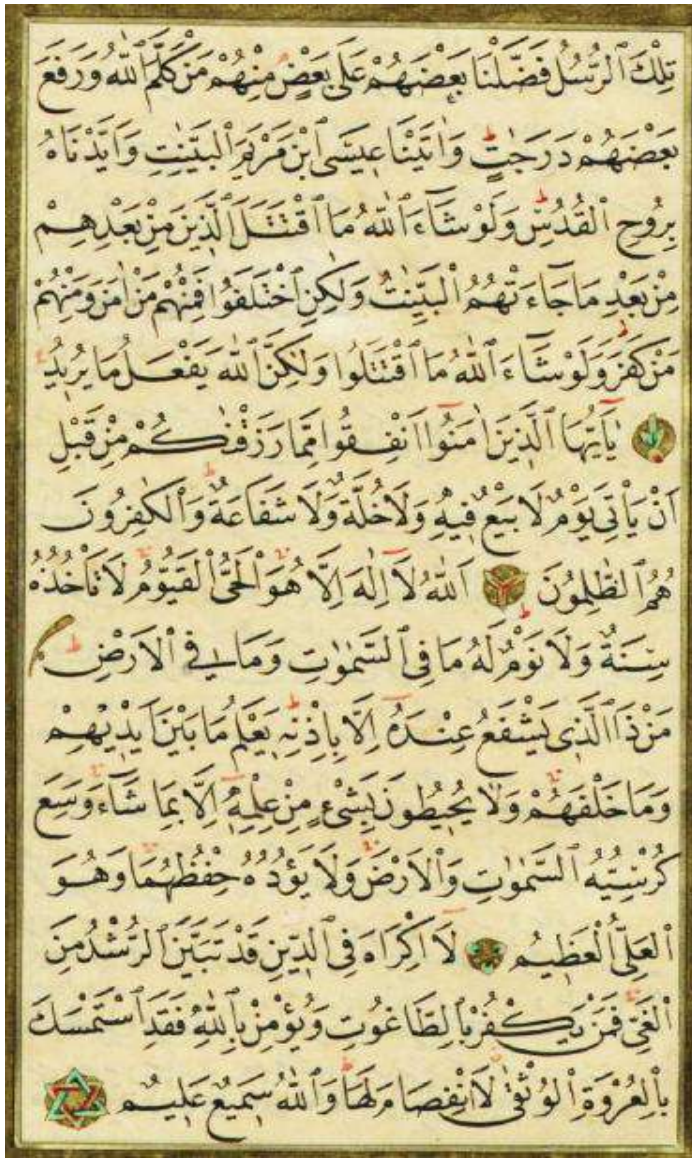 تِلْكَ ٱلرُّسُلُ فَضَّلْنَا بَعْضَهُمْ عَلٰى بَعْضٍ مِنْهُمْ مَنْ كَلَّمَ ٱللّٰهُ وَرَفَعَ
بَعْضَهُمْ دَرَجَاتٍ وَاٰتَيْنَا عِيسَى ٱبْنَ مَرْيَمَ ٱلْبَيِّنَاتِ وَاَيَّدْنَاهُ
بِرُوحِ ٱلْقُدُسِ وَلَوْ شَآءَ ٱللّٰهُ مَا ٱقْتَتَلَ ٱلَّذِينَ مِنْ بَعْدِهِمْ
مِنْ بَعْدِ مَا جَآءَتْهُمُ ٱلْبَيِّنَاتُ وَلٰكِنِ ٱخْتَلَفُوا فَمِنْهُمْ مَنْ اٰمَنَ وَمِنْهُمْ
مَنْ كَفَرَ وَلَوْ شَآءَ ٱللّٰهُ مَا ٱقْتَتَلُوا وَلٰكِنَّ ٱللّٰهَ يَفْعَلُ مَا يُرِيدُ
يَآ اَيُّهَا ٱلَّذِينَ اٰمَنُوٓا اَنْفِقُوا مِمَّا رَزَقْنَاكُمْ مِنْ قَبْلِ
اَنْ يَأْتِيَ يَوْمٌ لَا بَيْعٌ فِيهِ وَلَا خُلَّةٌ وَلَا شَفَاعَةٌ وَٱلْكَافِرُونَ
هُمُ ٱلظَّالِمُونَ ٱَللّٰهُ لَآ اِلٰهَ اِلَّا هُوَ ٱلْحَيُّ ٱلْقَيُّومُ لَا تَأْخُذُهُ
سِنَةٌ وَلَا نَوْمٌ لَهُ مَا فِي ٱلسَّمٰوَاتِ وَمَا فِي ٱلْاَرْضِ
مَنْ ذَا ٱلَّذِي يَشْفَعُ عِنْدَهُٓ اِلَّا بِاِذْنِهِ يَعْلَمُ مَا بَيْنَ اَيْدِيهِمْ
وَمَا خَلْفَهُمْ وَلَا يُحِيطُونَ بِشَيْءٍ مِنْ عِلْمِهِٓ اِلَّا بِمَا شَآءَ وَسِعَ
كُرْسِيُّهُ ٱلسَّمٰوَاتِ وَٱلْاَرْضَ وَلَا يَؤُدُهُ حِفْظُهُمَا وَهُوَ
ٱلْعَلِيُّ ٱلْعَظِيمُ لَآ اِكْرَاهَ فِي ٱلدِّينِ قَدْ تَبَيَّنَ ٱلرُّشْدُ مِنَ
ٱلْغَيِّ فَمَنْ يَكْفُرْ بِٱلطَّاغُوتِ وَيُؤْمِنْ بِٱللّٰهِ فَقَدِ ٱسْتَمْسَكَ
بِٱلْعُرْوَةِ ٱلْوُثْقٰى لَا ٱنْفِصَامَ لَهَا وَٱللّٰهُ سَمِيعٌ عَلِيمٌ